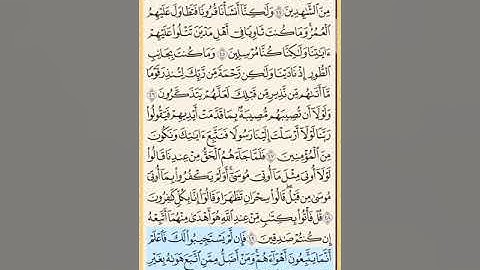 مِنَ ٱلشَّٰهِدِينَ ٤٤ وَلَٰكِنَّآ أَنشَأْنَا قُرُونًا فَتَطَاوَلَ عَلَيْهِمُ
ٱلْعُمُرُ ۚ وَمَا كُنتَ ثَاوِيًا فِىٓ أَهْلِ مَدْيَنَ تَتْلُوا۟ عَلَيْهِمْ
ءَايَٰتِنَا وَلَٰكِنَّا كُنَّا مُرْسِلِينَ ٤٥ وَمَا كُنتَ بِجَانِبِ
ٱلطُّورِ إِذْ نَادَيْنَا وَلَٰكِن رَّحْمَةً مِّن رَّبِّكَ لِتُنذِرَ قَوْمًا
مَّآ أَتَىٰهُم مِّن نَّذِيرٍ مِّن قَبْلِكَ لَعَلَّهُمْ يَتَذَكَّرُونَ ٤٦
وَلَوْلَآ أَن تُصِيبَهُم مُّصِيبَةٌۢ بِمَا قَدَّمَتْ أَيْدِيهِمْ فَيَقُولُوا۟
رَبَّنَا لَوْلَآ أَرْسَلْتَ إِلَيْنَا رَسُولًا فَنَتَّبِعَ ءَايَٰتِكَ وَنَكُونَ
مِنَ ٱلْمُؤْمِنِينَ ٤٧ فَلَمَّا جَآءَهُمُ ٱلْحَقُّ مِنْ عِندِنَا قَالُوا۟
لَوْلَآ أُوتِىَ مِثْلَ مَآ أُوتِىَ مُوسَىٰٓ ۚ أَوَلَمْ يَكْفُرُوا۟ بِمَآ أُوتِىَ
مُوسَىٰ مِن قَبْلُ ۖ قَالُوا۟ سِحْرَانِ تَظَٰهَرَا وَقَالُوٓا۟ إِنَّا بِكُلٍّ كَٰفِرُونَ
٤٨ قُلْ فَأْتُوا۟ بِكِتَٰبٍ مِّنْ عِندِ ٱللَّهِ هُوَ أَهْدَىٰ مِنْهُمَآ أَتَّبِعْهُ
إِن كُنتُمْ صَٰدِقِينَ ٤٩ فَإِن لَّمْ يَسْتَجِيبُوا۟ لَكَ فَٱعْلَمْ
أَنَّمَا يَتَّبِعُونَ أَهْوَآءَهُمْ ۚ وَمَنْ أَضَلُّ مِمَّنِ ٱتَّبَعَ هَوَىٰهُ بِغَيْرِ